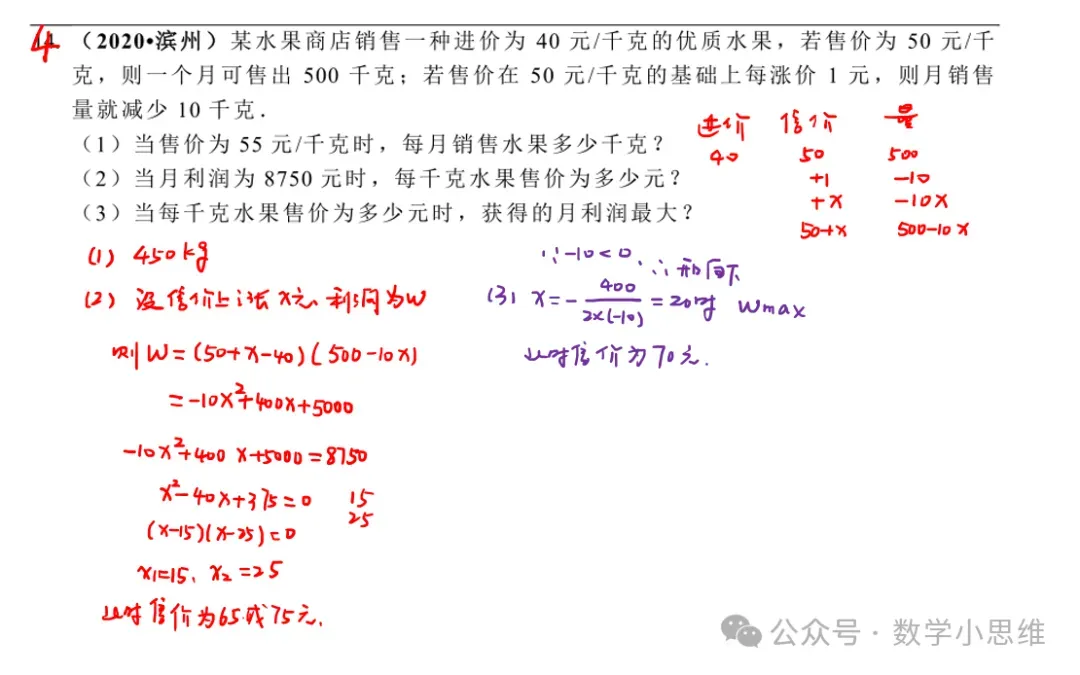 4
（2020•滨州）某水果商店销售一种进价为 40 元/千克的优质水果，若售价为 50 元/千
克，则一个月可售出 500 千克；若售价在 50 元/千克的基础上每涨价 1 元，则月销售
量就减少 10 千克．
（1）当售价为 55 元/千克时，每月销售水果多少千克？
（2）当月利润为 8750 元时，每千克水果售价为多少元？
（3）当每千克水果售价为多少元时，获得的月利润最大？
进价 售价 量
40 50 500
+1 -10
+x -10x
50+x 500-10x
(1) 450kg
(2) 设售价上涨x元、利润为W
则W=(50+x-40)(500-10x)
=-10x²+400x+5000
-10x²+400x+5000=8750
x²-40x+375=0 15
25
(x-15)(x-25)=0
x₁=15、x₂=25
此时售价为65或75元.
∵-10<0，∴开口向下
(3) x=-400/2×(-10)=20时 Wmax
此时售价为70元.
公众号·数学小思维